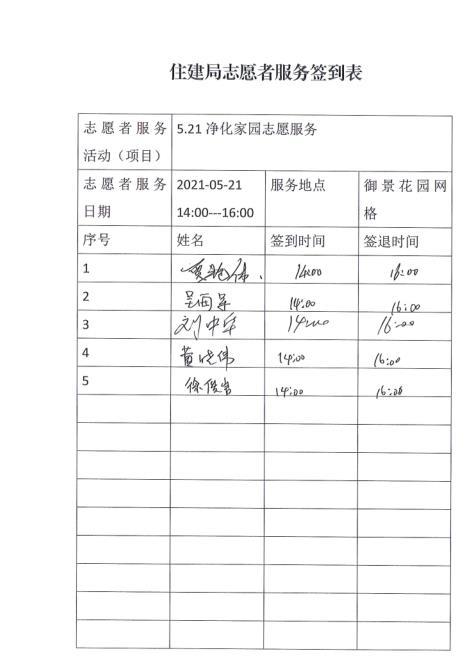 住建局志愿者服务签到表
志愿者服务活动（项目） 5.21 净化家园志愿服务
志愿者服务日期 2021-05-21 14:00---16:00 服务地点 御景花园网格
序号 姓名 签到时间 签退时间
1 14:00 16:00
2 14:00 16:00
3 刘中华 14:00 16:00
4 黄晓伟 14:00 16:00
5 徐俊 14:00 16:00